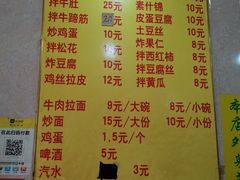 拌牛肚 25元 素什锦 10元
拌牛蹄筋 25 皮蛋豆腐 10元
炒鸡蛋 10元 土豆丝 10元
拌松花 10元 炸果仁 8元
炸豆腐 10元 拌西红柿 8元
鸡丝拉皮 12元 拌豆腐丝 8元
拌黄瓜 8元
牛肉拉面 9元/大碗 8元/小碗
炒面 15元/大份 10元/小份
鸡蛋 1.5元/个
啤酒 5元
汽水 3元